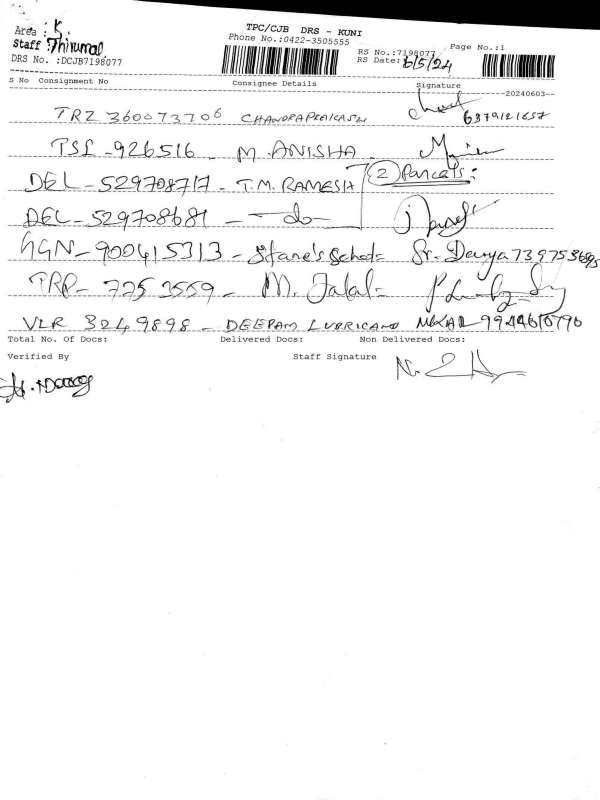 TPC/CJB DRS - KUNI
Area : K.
Phone No.:0422-3505555
Staff : Thirumal
RS No.:7198077 Page No.:1
DRS No. :DCJB7198077
RS Date: 6/5/24
S No Consignment No Consignee Details Signature
--20240603--
TRZ 360073706 CHANDRAPRAKASH 6379121657
TSL -926516 - M. ANISHA -
DEL - 529708717 - T.M. RAMESH (2) Parcels:
DEL - 529708681 - -do-
GGN - 900415313 - Stane's School= Sr. Davya
TRP - 7253559 - M. Jalal=
VLR 3249898 - DEEPAM LUBRICANO
Total No. Of Docs: Delivered Docs: Non Delivered Docs:
Verified By Staff Signature